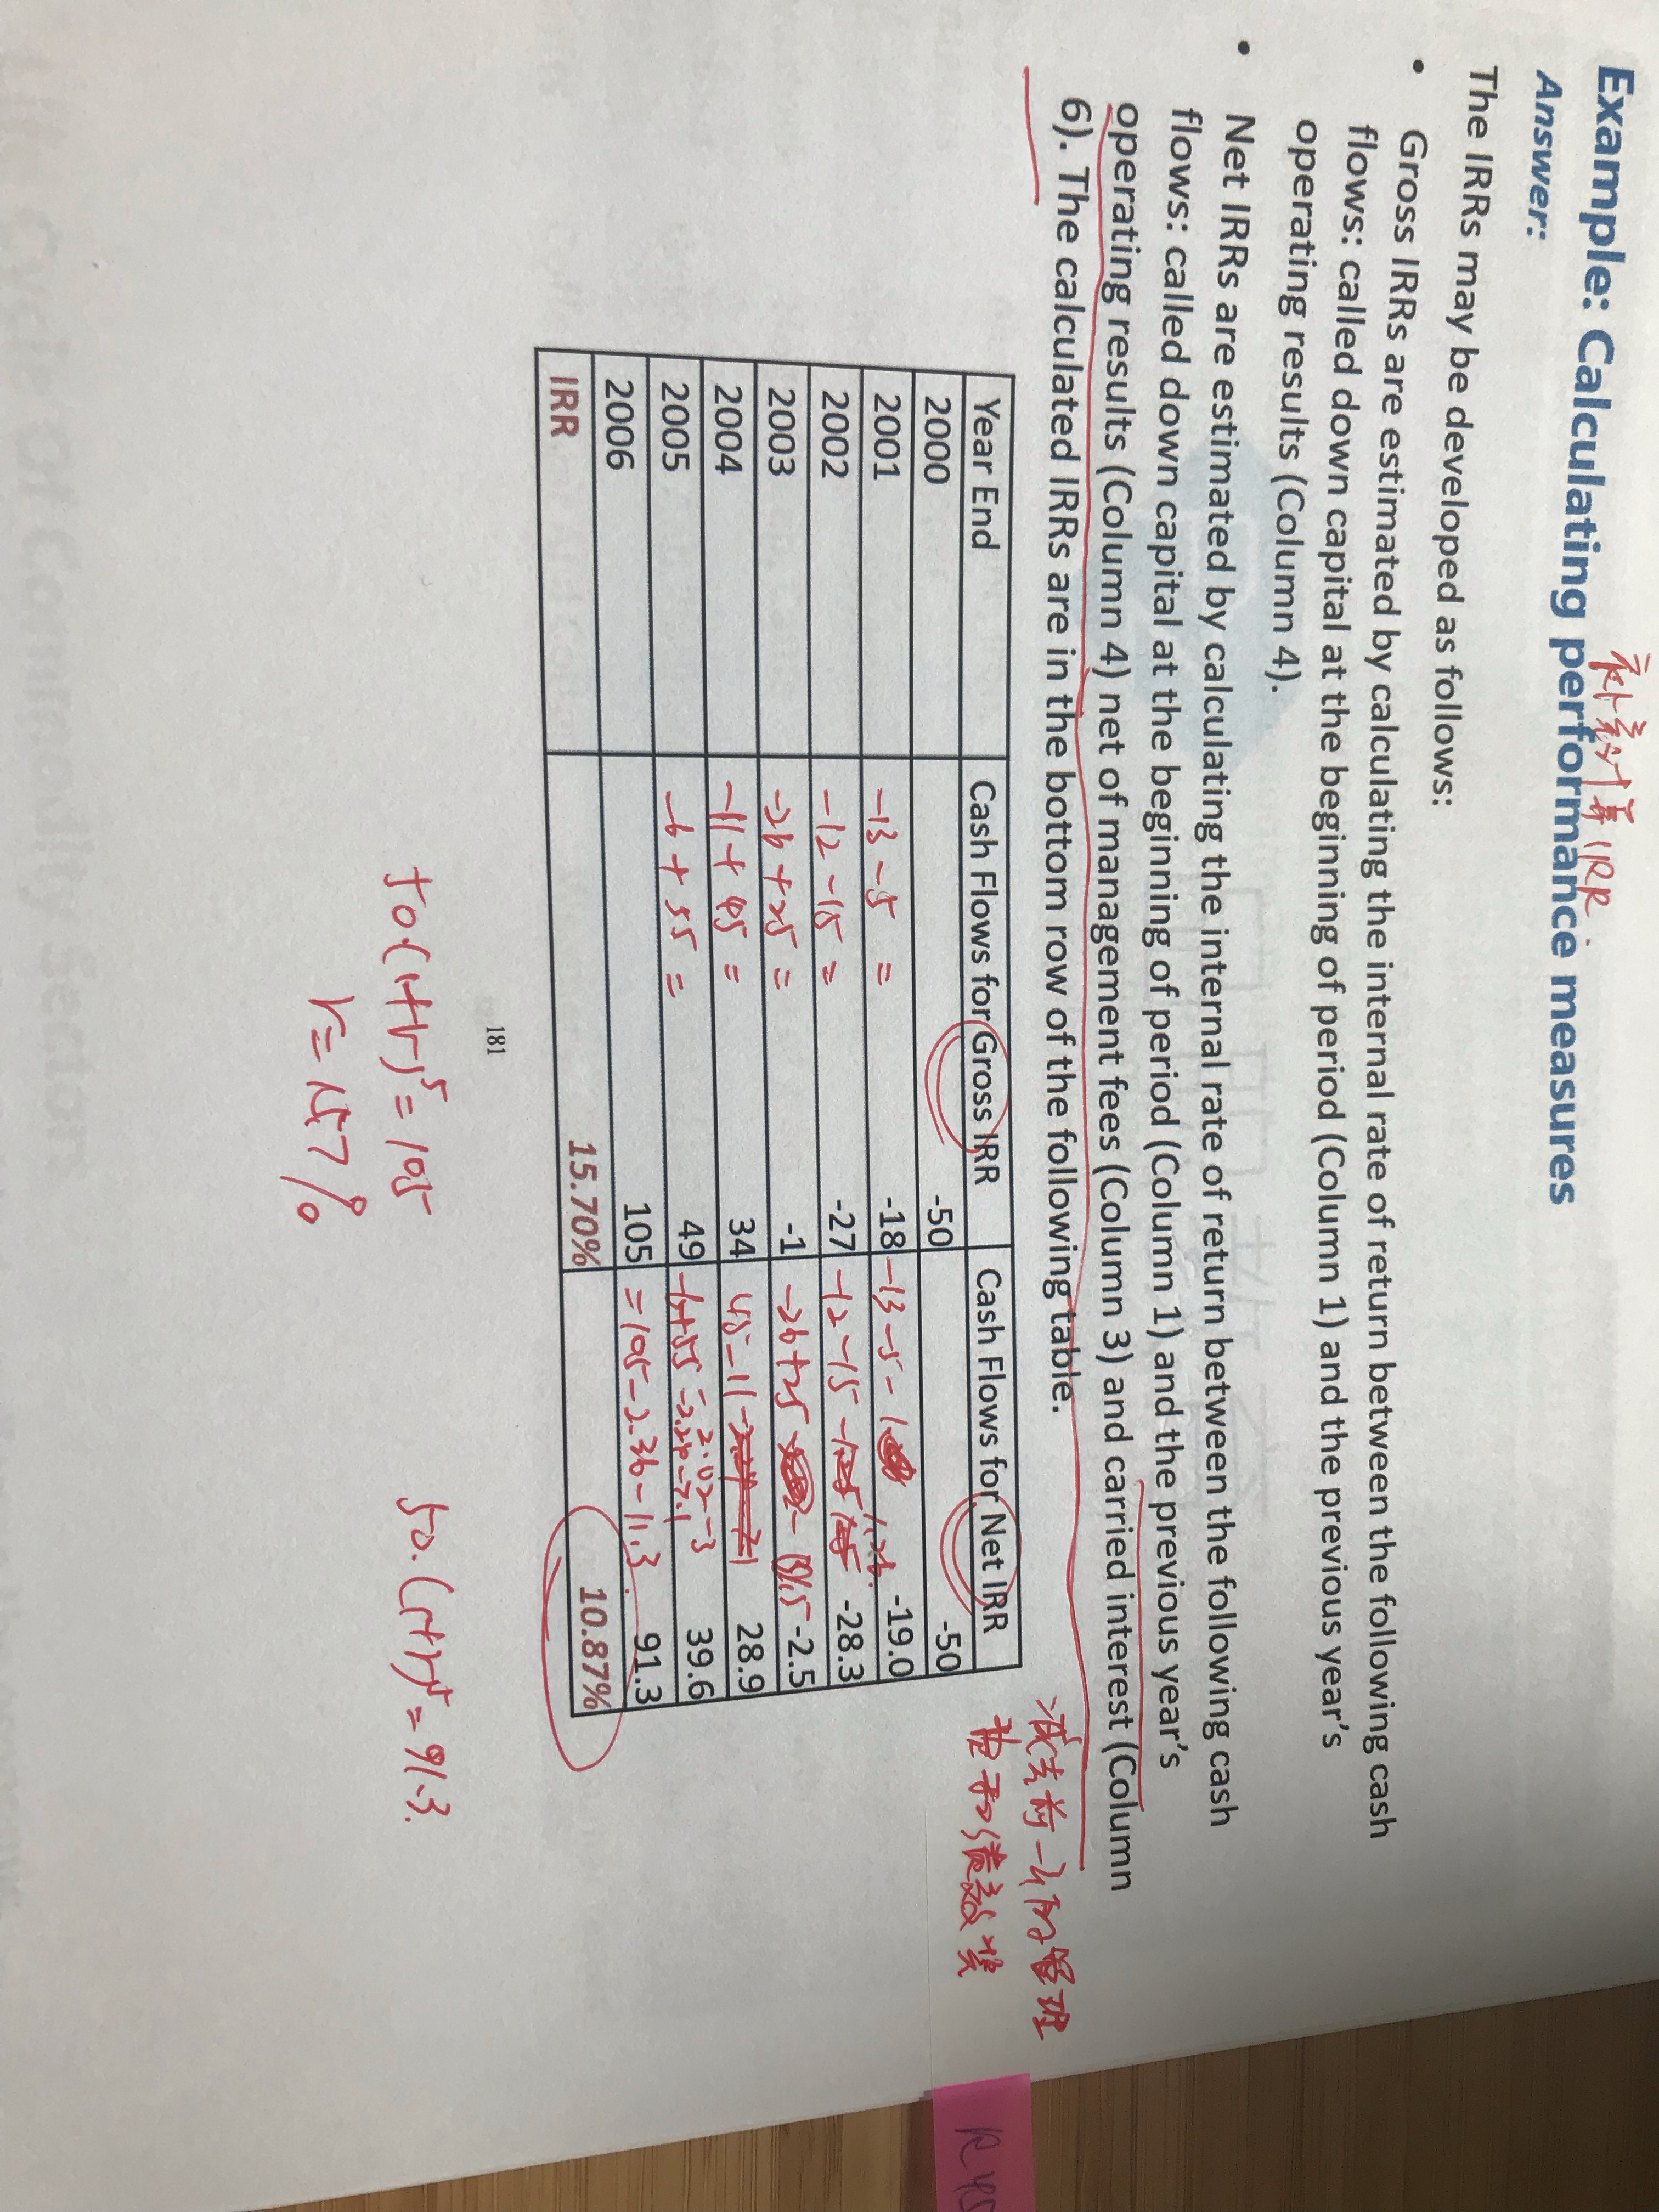 补充计算IRR.
Example: Calculating performance measures
Answer:
The IRRs may be developed as follows:
• Gross IRRs are estimated by calculating the internal rate of return between the following cash
flows: called down capital at the beginning of period (Column 1) and the previous year's
operating results (Column 4).
• Net IRRs are estimated by calculating the internal rate of return between the following cash
flows: called down capital at the beginning of period (Column 1) and the previous year's
operating results (Column 4) net of management fees (Column 3) and carried interest (Column
6). The calculated IRRs are in the bottom row of the following table.
减去前一年的管理
费和绩效奖
Year End Cash Flows for Gross IRR Cash Flows for Net IRR
2000 -50 -50
2001 -13-5 = -18 -13-5-1 -19.0
2002 -12-15 = -27 -12-15 -28.3
2003 -26+25 = -1 -26+25 -2.5
2004 -11+45 = 34 45-11 28.9
2005 -6+55 = 49 -6+55 39.6
2006 105 =105-2.36-11.3 91.3
IRR 15.70% 10.87%
181
50.(1+r)⁵=105
r=15.7%
50.(1+r)⁵=91.3.
R45